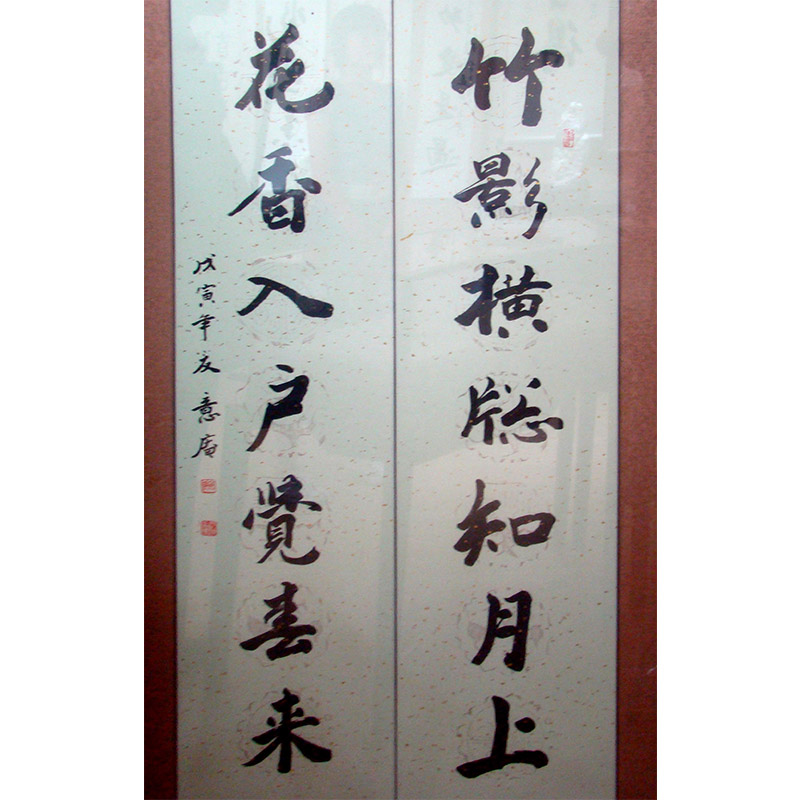 竹影橫牕知月上
花香入户覺春来
戊寅年夏意庵